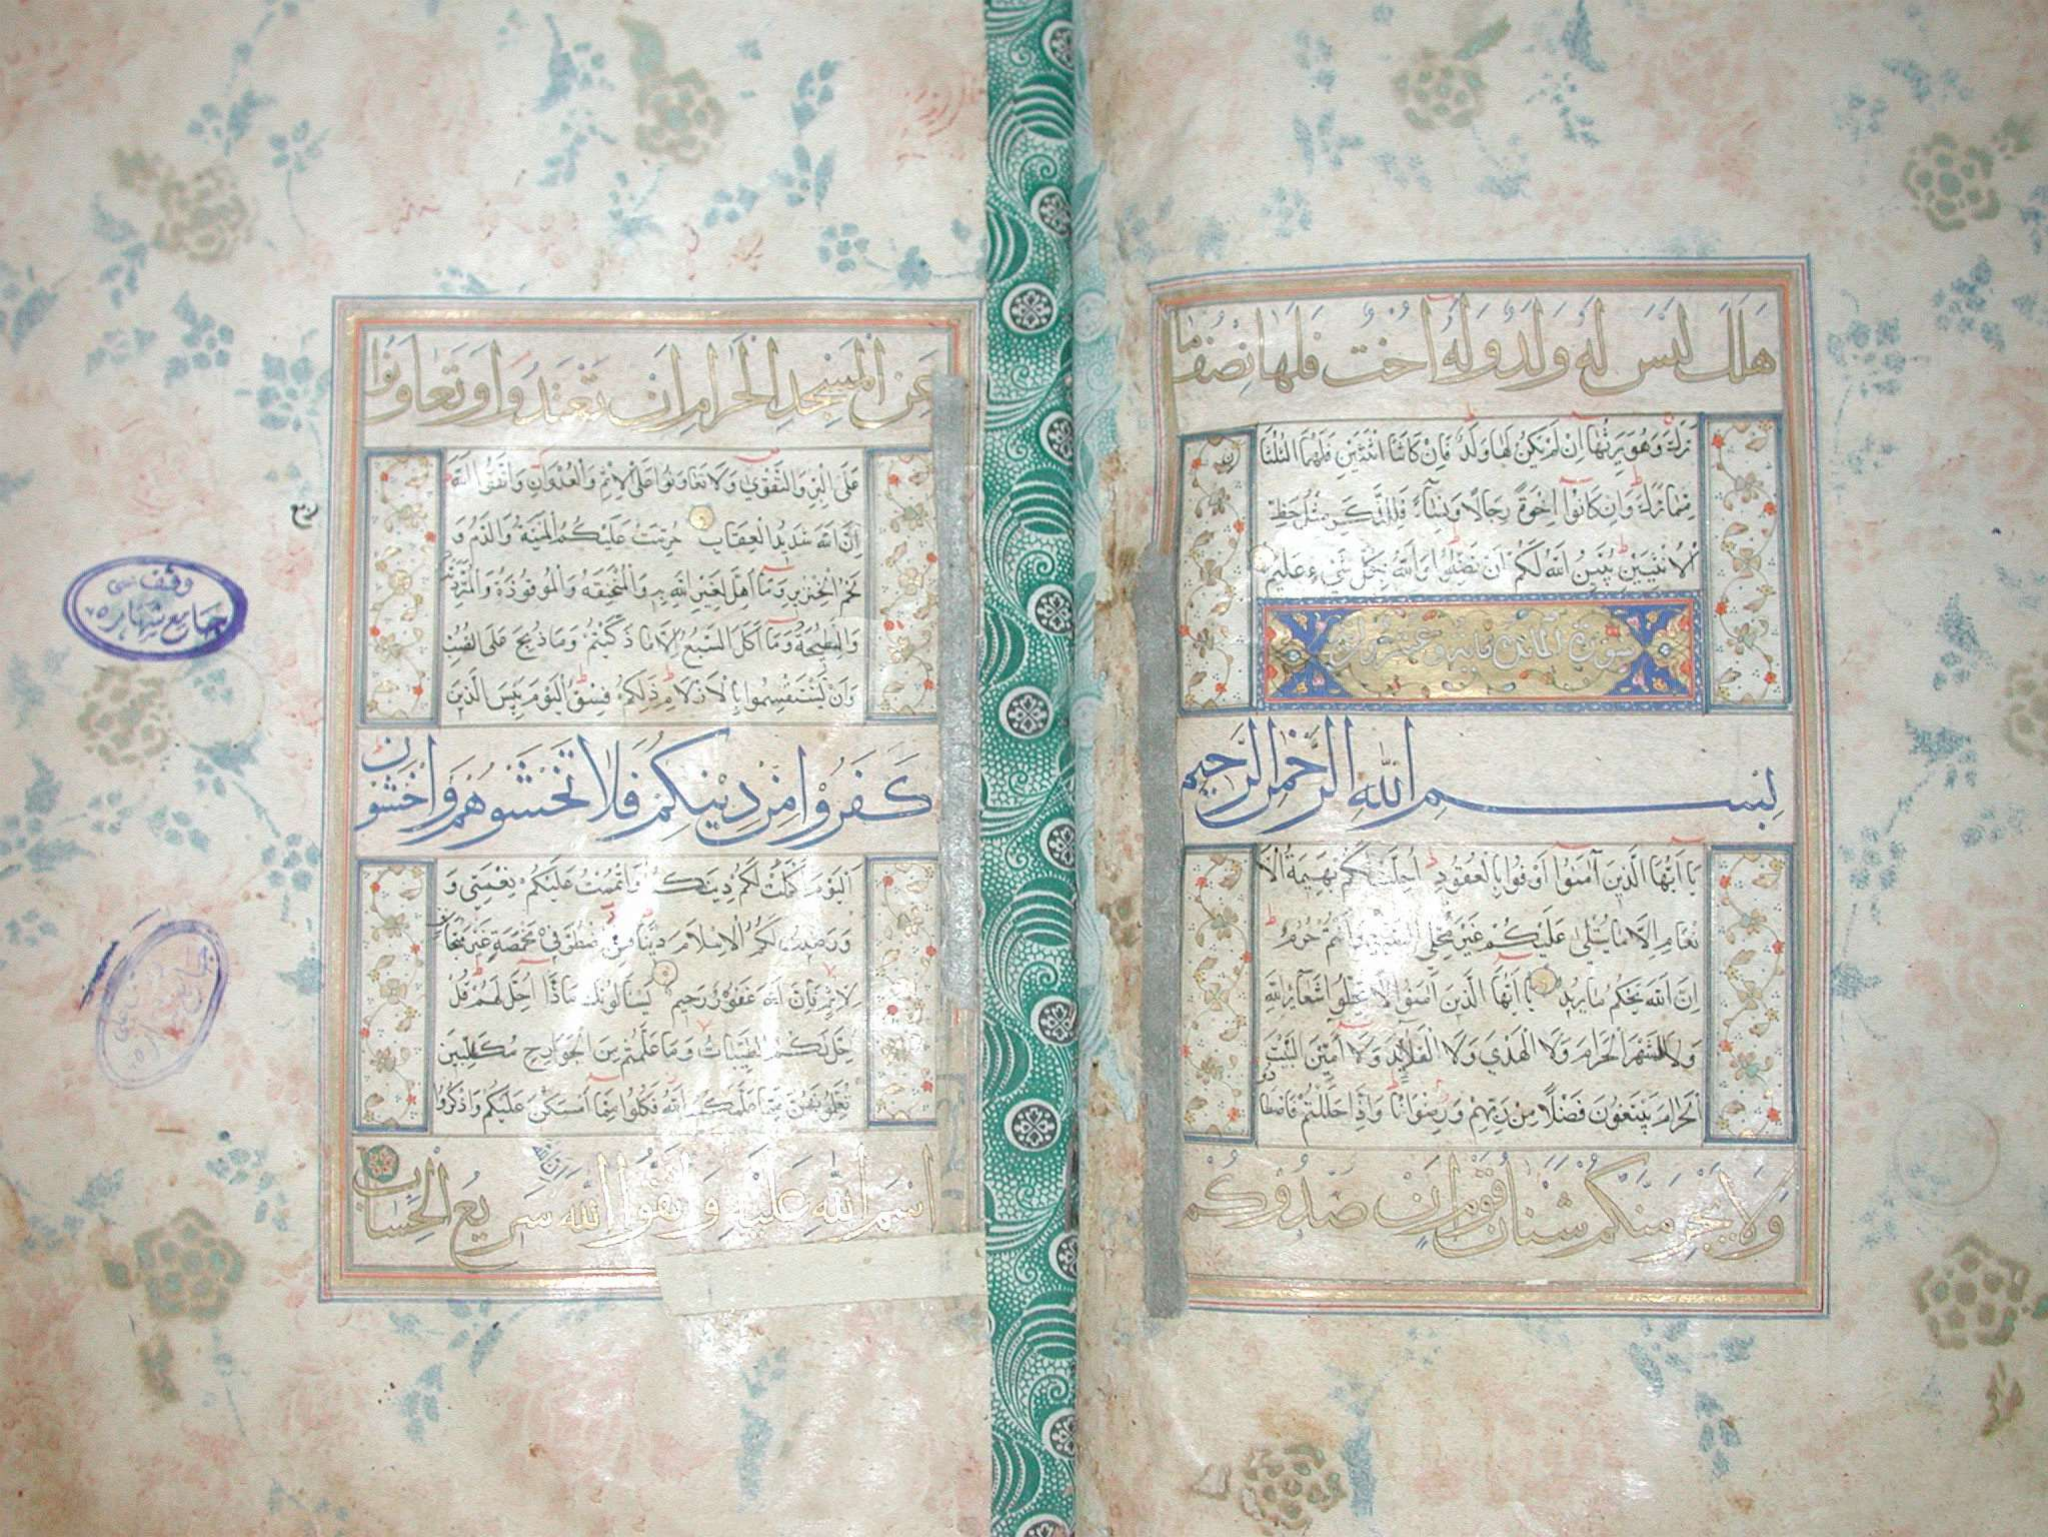 هَلَكَ لَيْسَ لَهُ وَلَدٌ وَلَهُ أُخْتٌ فَلَهَا نِصْفُ مَا
تَرَكَ وَهُوَ يَرِثُهَا اِنْ لَمْ يَكُنْ لَهَا وَلَدٌ فَاِنْ كَانَتَا اثْنَتَيْنِ فَلَهُمَا الثُّلُثَا
نِ
مِمَّا تَرَكَ وَاِنْ كَانُوا اِخْوَةً رِجَالًا وَنِسَاءً فَلِلذَّكَرِ مِثْلُ حَظِّ
الْاُنْثَيَيْنِ يُبَيِّنُ اللهُ لَكُمْ اَنْ تَضِلُّوا وَاللهُ بِكُلِّ شَيْءٍ عَلِيمٌ
سورة المائدة مائة وعشرون
بِسْمِ اللهِ الرَّحْمٰنِ الرَّحِيمِ
يَا اَيُّهَا الَّذِينَ آمَنُوا اَوْفُوا بِالْعُقُودِ اُحِلَّتْ لَكُمْ بَهِيمَةُ الْاَ
نْعَامِ اِلَّا مَا يُتْلٰى عَلَيْكُمْ غَيْرَ مُحِلِّي الصَّيْدِ وَاَنْتُمْ حُرُمٌ
اِنَّ اللهَ يَحْكُمُ مَا يُرِيدُ يَا اَيُّهَا الَّذِينَ آمَنُوا لَا تُحِلُّوا شَعَآئِرَ اللهِ
وَلَا الشَّهْرَ الْحَرَامَ وَلَا الْهَدْيَ وَلَا الْقَلَآئِدَ وَلَا آمِّينَ الْبَيْتَ
الْحَرَامَ يَبْتَغُونَ فَضْلًا مِنْ رَبِّهِمْ وَرِضْوَانًا وَاِذَا حَلَلْتُمْ فَاصْطَا
دُوا
وَلَا يَجْرِمَنَّكُمْ شَنَآنُ قَوْمٍ اَنْ صَدُّوكُمْ
عَنِ الْمَسْجِدِ الْحَرَامِ اَنْ تَعْتَدُوا وَتَعَاوَنُوا
عَلَى الْبِرِّ وَالتَّقْوٰى وَلَا تَعَاوَنُوا عَلَى الْاِثْمِ وَالْعُدْوَانِ وَاتَّقُوا اللهَ
اِنَّ اللهَ شَدِيدُ الْعِقَابِ حُرِّمَتْ عَلَيْكُمُ الْمَيْتَةُ وَالدَّمُ وَ
لَحْمُ الْخِنْزِيرِ وَمَا اُهِلَّ لِغَيْرِ اللهِ بِهِ وَالْمُنْخَنِقَةُ وَالْمَوْقُوذَةُ وَالْمُتَرَدِّيَةُ
وَالنَّطِيحَةُ وَمَا اَكَلَ السَّبُعُ اِلَّا مَا ذَكَّيْتُمْ وَمَا ذُبِحَ عَلَى النُّصُبِ
وَاَنْ تَسْتَقْسِمُوا بِالْاَزْلَامِ ذٰلِكُمْ فِسْقٌ الْيَوْمَ يَئِسَ الَّذِينَ
كَفَرُوا مِنْ دِينِكُمْ فَلَا تَخْشَوْهُمْ وَاخْشَوْنِ
الْيَوْمَ اَكْمَلْتُ لَكُمْ دِينَكُمْ وَاَتْمَمْتُ عَلَيْكُمْ نِعْمَتِي وَ
وَرَضِيتُ لَكُمُ الْاِسْلَامَ دِينًا فَمَنِ اضْطُرَّ فِي مَخْمَصَةٍ غَيْرَ مُتَجَانِفٍ
لِاِثْمٍ فَاِنَّ اللهَ غَفُورٌ رَحِيمٌ يَسْاَلُونَكَ مَاذَا اُحِلَّ لَهُمْ قُلْ
اُحِلَّ لَكُمُ الطَّيِّبَاتُ وَمَا عَلَّمْتُمْ مِنَ الْجَوَارِحِ مُكَلِّبِينَ
تُعَلِّمُونَهُنَّ مِمَّا عَلَّمَكُمُ اللهُ فَكُلُوا مِمَّا اَمْسَكْنَ عَلَيْكُمْ وَاذْكُرُوا
اسْمَ اللهِ عَلَيْهِ وَاتَّقُوا اللهَ سَرِيعُ الْحِسَابِ
اِنَّ اللهَ
ربع
وقف
جامع شهاره